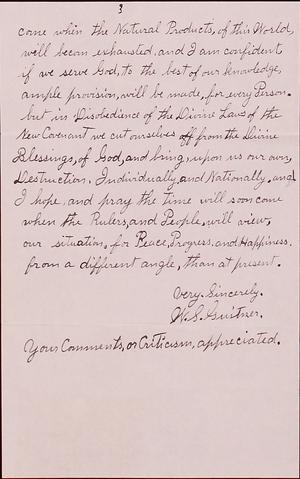 3
come when the Natural Products, of this World,
will becom exhausted, and I am confident
if we serve God, to the best of our knowledge,
ample provision, will be made, for every Person.
but in Disobedience of the Divine Laws of the
New Covenant we cut ourselves off from the Divine
Blessings, of God, and bring, upon us our own,
Destruction, Individually, and Nationally. and
I hope, and pray the time will soon come
when the Rulers, and People, will view,
our situation, for Peace, Progress, and Happiness.
from a different angle, than at present.
Very. Sincerely.
W. S. Guitner.
Your Comments, or Criticism, appreciated.